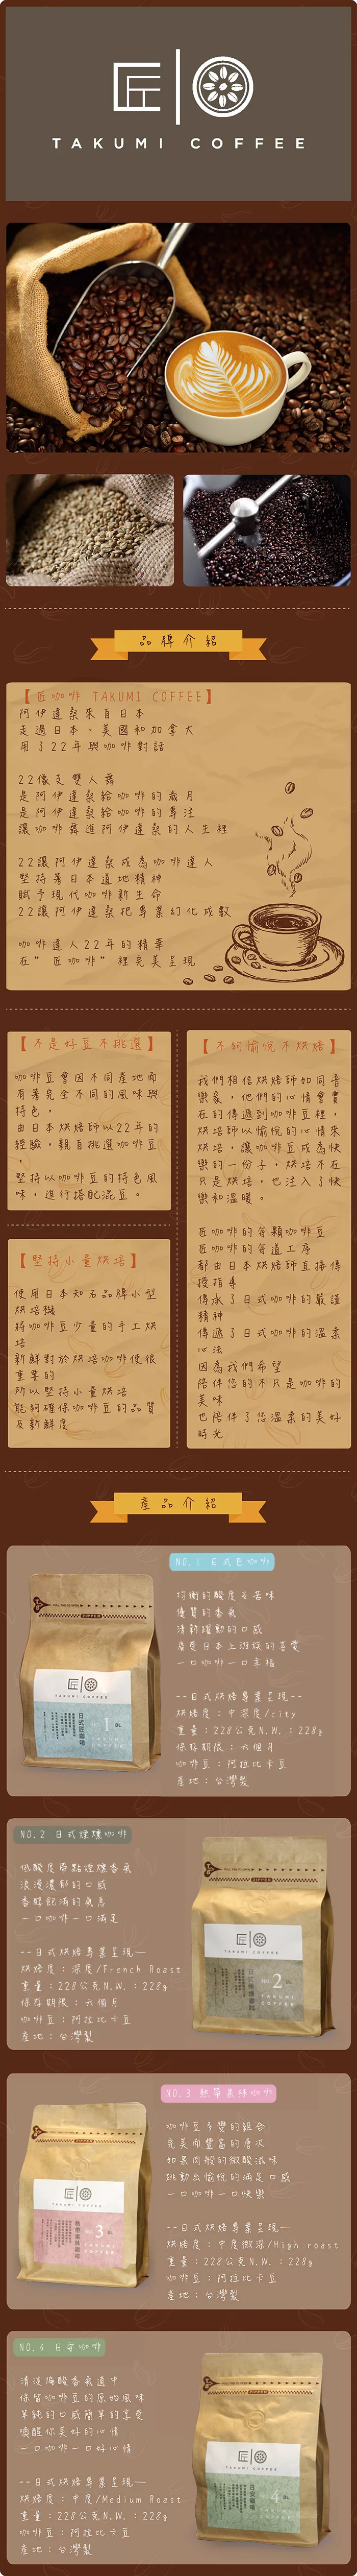 匠
TAKUMI COFFEE
品牌介紹
【匠咖啡 TAKUMI COFFEE】
阿伊達桑來自日本
走過日本、美國和加拿大
用了22年與咖啡對話
22像支雙人舞
是阿伊達桑給咖啡的歲月
是阿伊達桑給咖啡的專注
讓咖啡舞進阿伊達桑的人生裡
22讓阿伊達桑成為咖啡達人
堅持著日本道地精神
賦予現代咖啡新生命
22讓阿伊達桑把專業幻化成數
咖啡達人22年的精華
在”匠咖啡”裡完美呈現
【不是好豆不挑選】
咖啡豆會因不同產地而
有著完全不同的風味與
特色，
由日本烘焙師以22年的
經驗，親自挑選咖啡豆
，
堅持以咖啡豆的特色風
味，進行搭配混豆。
【堅持小量烘培】
使用日本知名品牌小型
烘培機
將咖啡豆少量的手工烘
培
新鮮對於烘培咖啡使很
重要的
所以堅持小量烘培
能夠確保咖啡豆的品質
及新鮮度
【不夠愉悅不烘培】
我們相信烘培師如同音
樂家，他們的心情會實
在的傳遞到咖啡豆裡
烘培師以愉悅的心情來
烘培，讓咖啡豆成為快
樂的一份子，烘培不在
只是烘培，也注入了快
樂和溫暖。
匠咖啡的每顆咖啡豆
匠咖啡的每道工序
都由日本烘培師直接傳
授指導
傳承了日式咖啡的嚴謹
精神
傳遞了日式咖啡的溫柔
心法
因為我們希望
陪伴您的不只是咖啡的
美味
也陪伴了您溫柔的美好
時光
產品介紹
NO.1 日式匠咖啡
均衡的酸度及苦味
優質的香氣
清新躍動的口感
廣受日本上班族的喜愛
一口咖啡一口幸福
--日式烘焙專業呈現--
烘焙度：中深度/city
重量：228公克N.W.：228g
保存期限：六個月
咖啡豆：阿拉比卡豆
產地：台灣製
匠
TAKUMI COFFEE
日式匠咖啡
1
NO.2 日式煙燻咖啡
低酸度帶點煙燻香氣
浪漫濃郁的口感
香醇飽滿的氣息
一口咖啡一口滿足
--日式烘焙專業呈現—
烘焙度：深度/French Roast
重量：228公克N.W.：228g
保存期限：六個月
咖啡豆：阿拉比卡豆
產地：台灣製
匠
TAKUMI COFFEE
日式煙燻咖啡
NO.2
NO.3 熱帶果林咖啡
咖啡豆多變的組合
完美而豐富的層次
如果肉般的微酸滋味
挑動出愉悅的滿足口感
一口咖啡一口快樂
--日式烘焙專業呈現—
烘焙度：中度微深/High roast
重量：228公克N.W.：228g
咖啡豆：阿拉比卡豆
產地：台灣製
匠
TAKUMI COFFEE
熱帶果林咖啡
3
NO.4 日安咖啡
清淡偏酸香氣適中
保留咖啡豆的原始風味
單純的口感簡單的享受
喚醒你美好的心情
一口咖啡一口好心情
--日式烘焙專業呈現—
烘焙度：中度/Medium Roast
重量：228公克N.W.：228g
咖啡豆：阿拉比卡豆
產地：台灣製
匠
TAKUMI COFFEE
日安咖啡
4